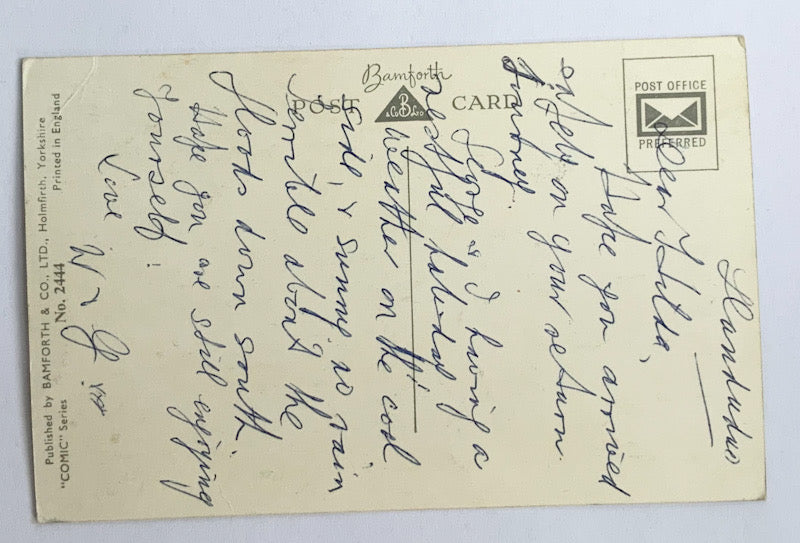 Llandudno
Dear Hilda,
Hope you arrived
safely on your return
journey.
& I having a
restful holiday
weather on the cool
side, & sunny, no rain
terrible about the
floods down south
Hope you are still enjoying
yourself
Love
W & G xx
Bamforth
POST CARD
& Co B LTD
POST OFFICE
PREFERRED
Published by BAMFORTH & CO., LTD., Holmfirth, Yorkshire
"COMIC" Series No. 2444 Printed in England